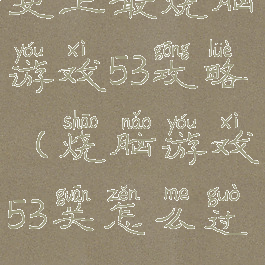 爱上最烧脑
yóu xì gōng lüè
游戏53攻略
shāo nǎo yóu xì
(烧脑游戏
guān zěn me guò
53关怎么过